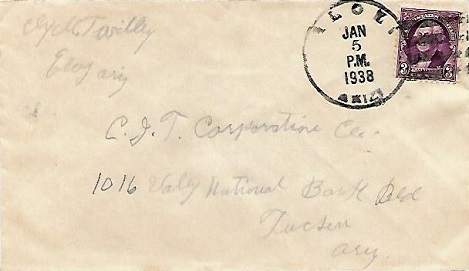 Eloy ariz
ELOY
JAN
5
P.M.
1938
ARIZ.
3 3
C. I. T. Corporation Co.
1016 Valy National Bank Bld
Tucson
Ary.